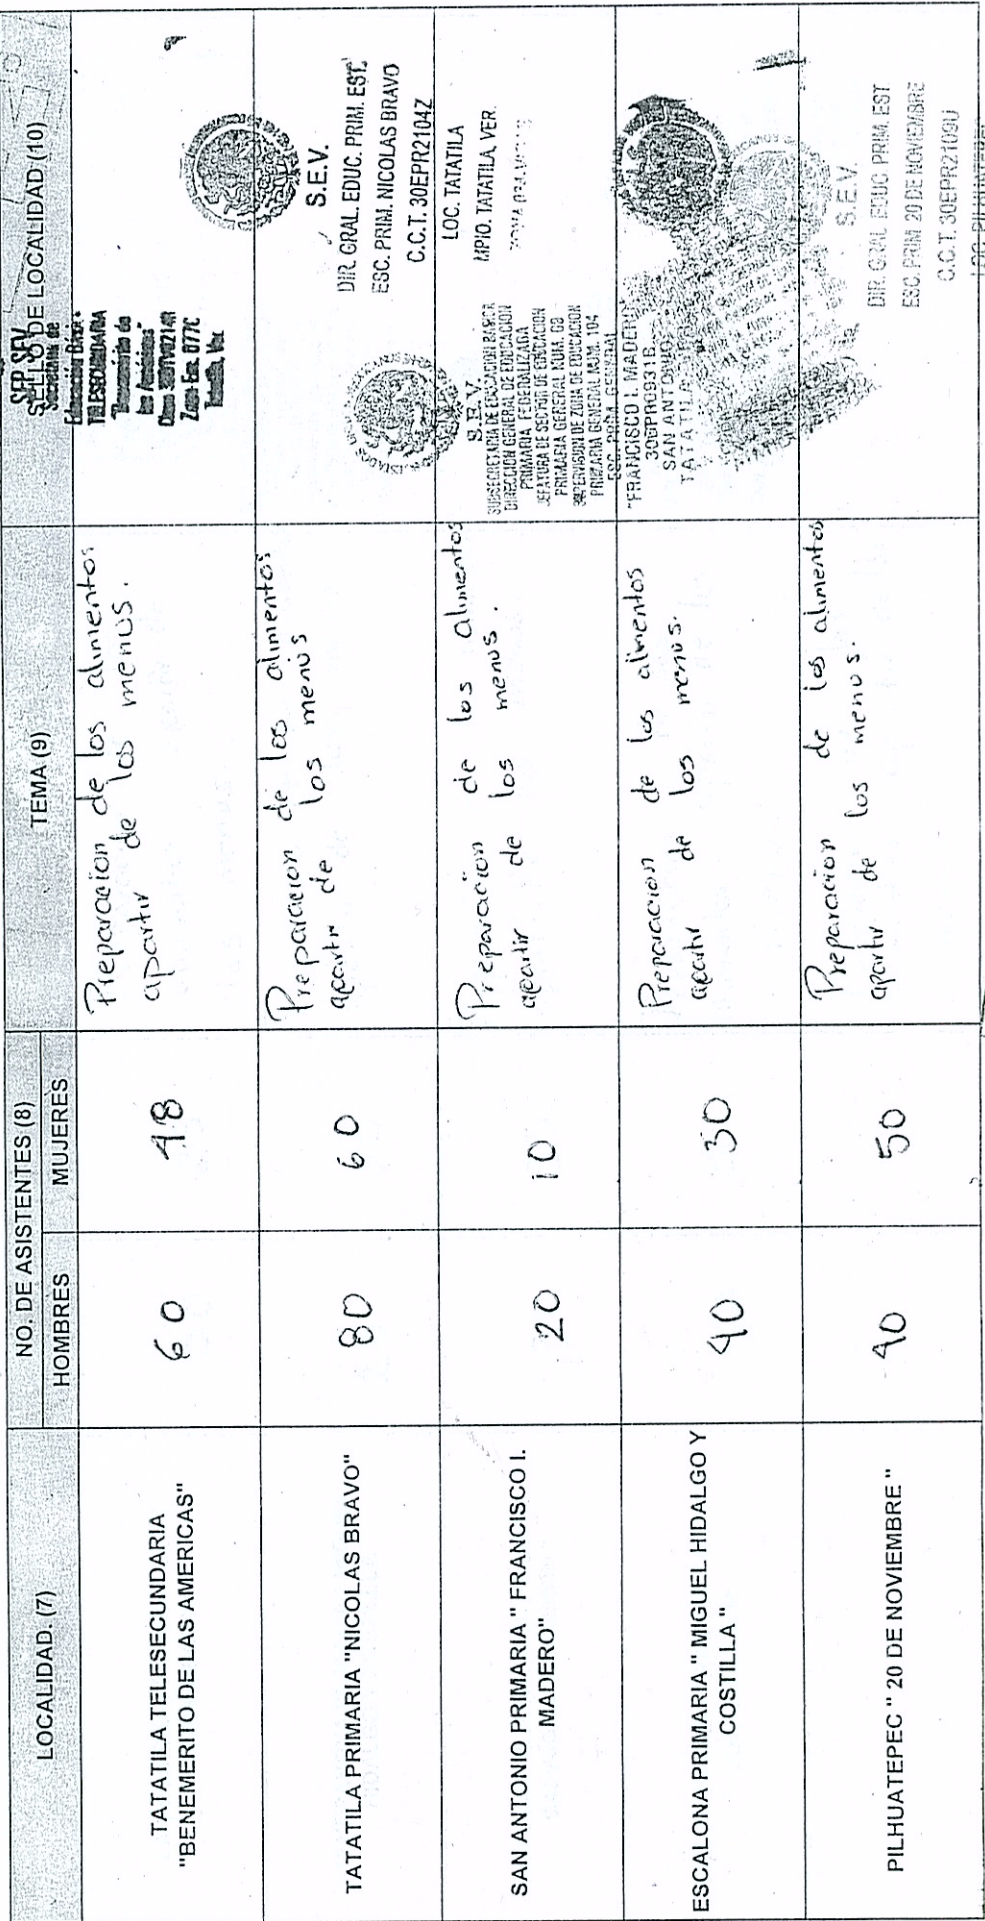 LOCALIDAD. (7)
NO. DE ASISTENTES (8)
HOMBRES
MUJERES
TEMA (9)
SELLO DE LOCALIDAD (10)
TATATILA TELESECUNDARIA
"BENEMERITO DE LAS AMERICAS"
60
48
Preparacion de los alimentos
apartir de los menus.
SEP SEV
TELESECUNDARIA
"Benemérito de
las Américas"
TATATILA PRIMARIA "NICOLAS BRAVO"
80
60
Preparacion de los alimentos
apartir de los menus
S.E.V.
DIR. GRAL. EDUC. PRIM. EST.
ESC. PRIM. NICOLAS BRAVO
C.C.T. 30EPR2104Z
LOC. TATATILA
MPIO. TATATILA, VER.
SAN ANTONIO PRIMARIA " FRANCISCO I.
MADERO"
20
10
Preparacion de los alimentos
apartir de los menus.
S.E.V.
SUBSECRETARIA DE EDUCACION BASICA
DIRECCION GENERAL DE EDUCACION
PRIMARIA FEDERALIZADA
JEFATURA DE SECTOR DE EDUCACION
PRIMARIA GENERAL NUM. 03
SUPERVISION DE ZONA DE EDUCACION
PRIMARIA GENERAL NUM. 104
ESC. PRIM. GENERAL
"FRANCISCO I. MADERO"
SAN ANTONIO
TATATILA
ESCALONA PRIMARIA " MIGUEL HIDALGO Y
COSTILLA "
40
30
Preparacion de los alimentos
apartir de los menus.
PILHUATEPEC " 20 DE NOVIEMBRE "
40
50
Preparacion de los alimentos
apartir de los menus.
S.E.V.
DIR. GRAL. EDUC. PRIM. EST
ESC. PRIM. 20 DE NOVIEMBRE
C.C.T. 30EPR2109U